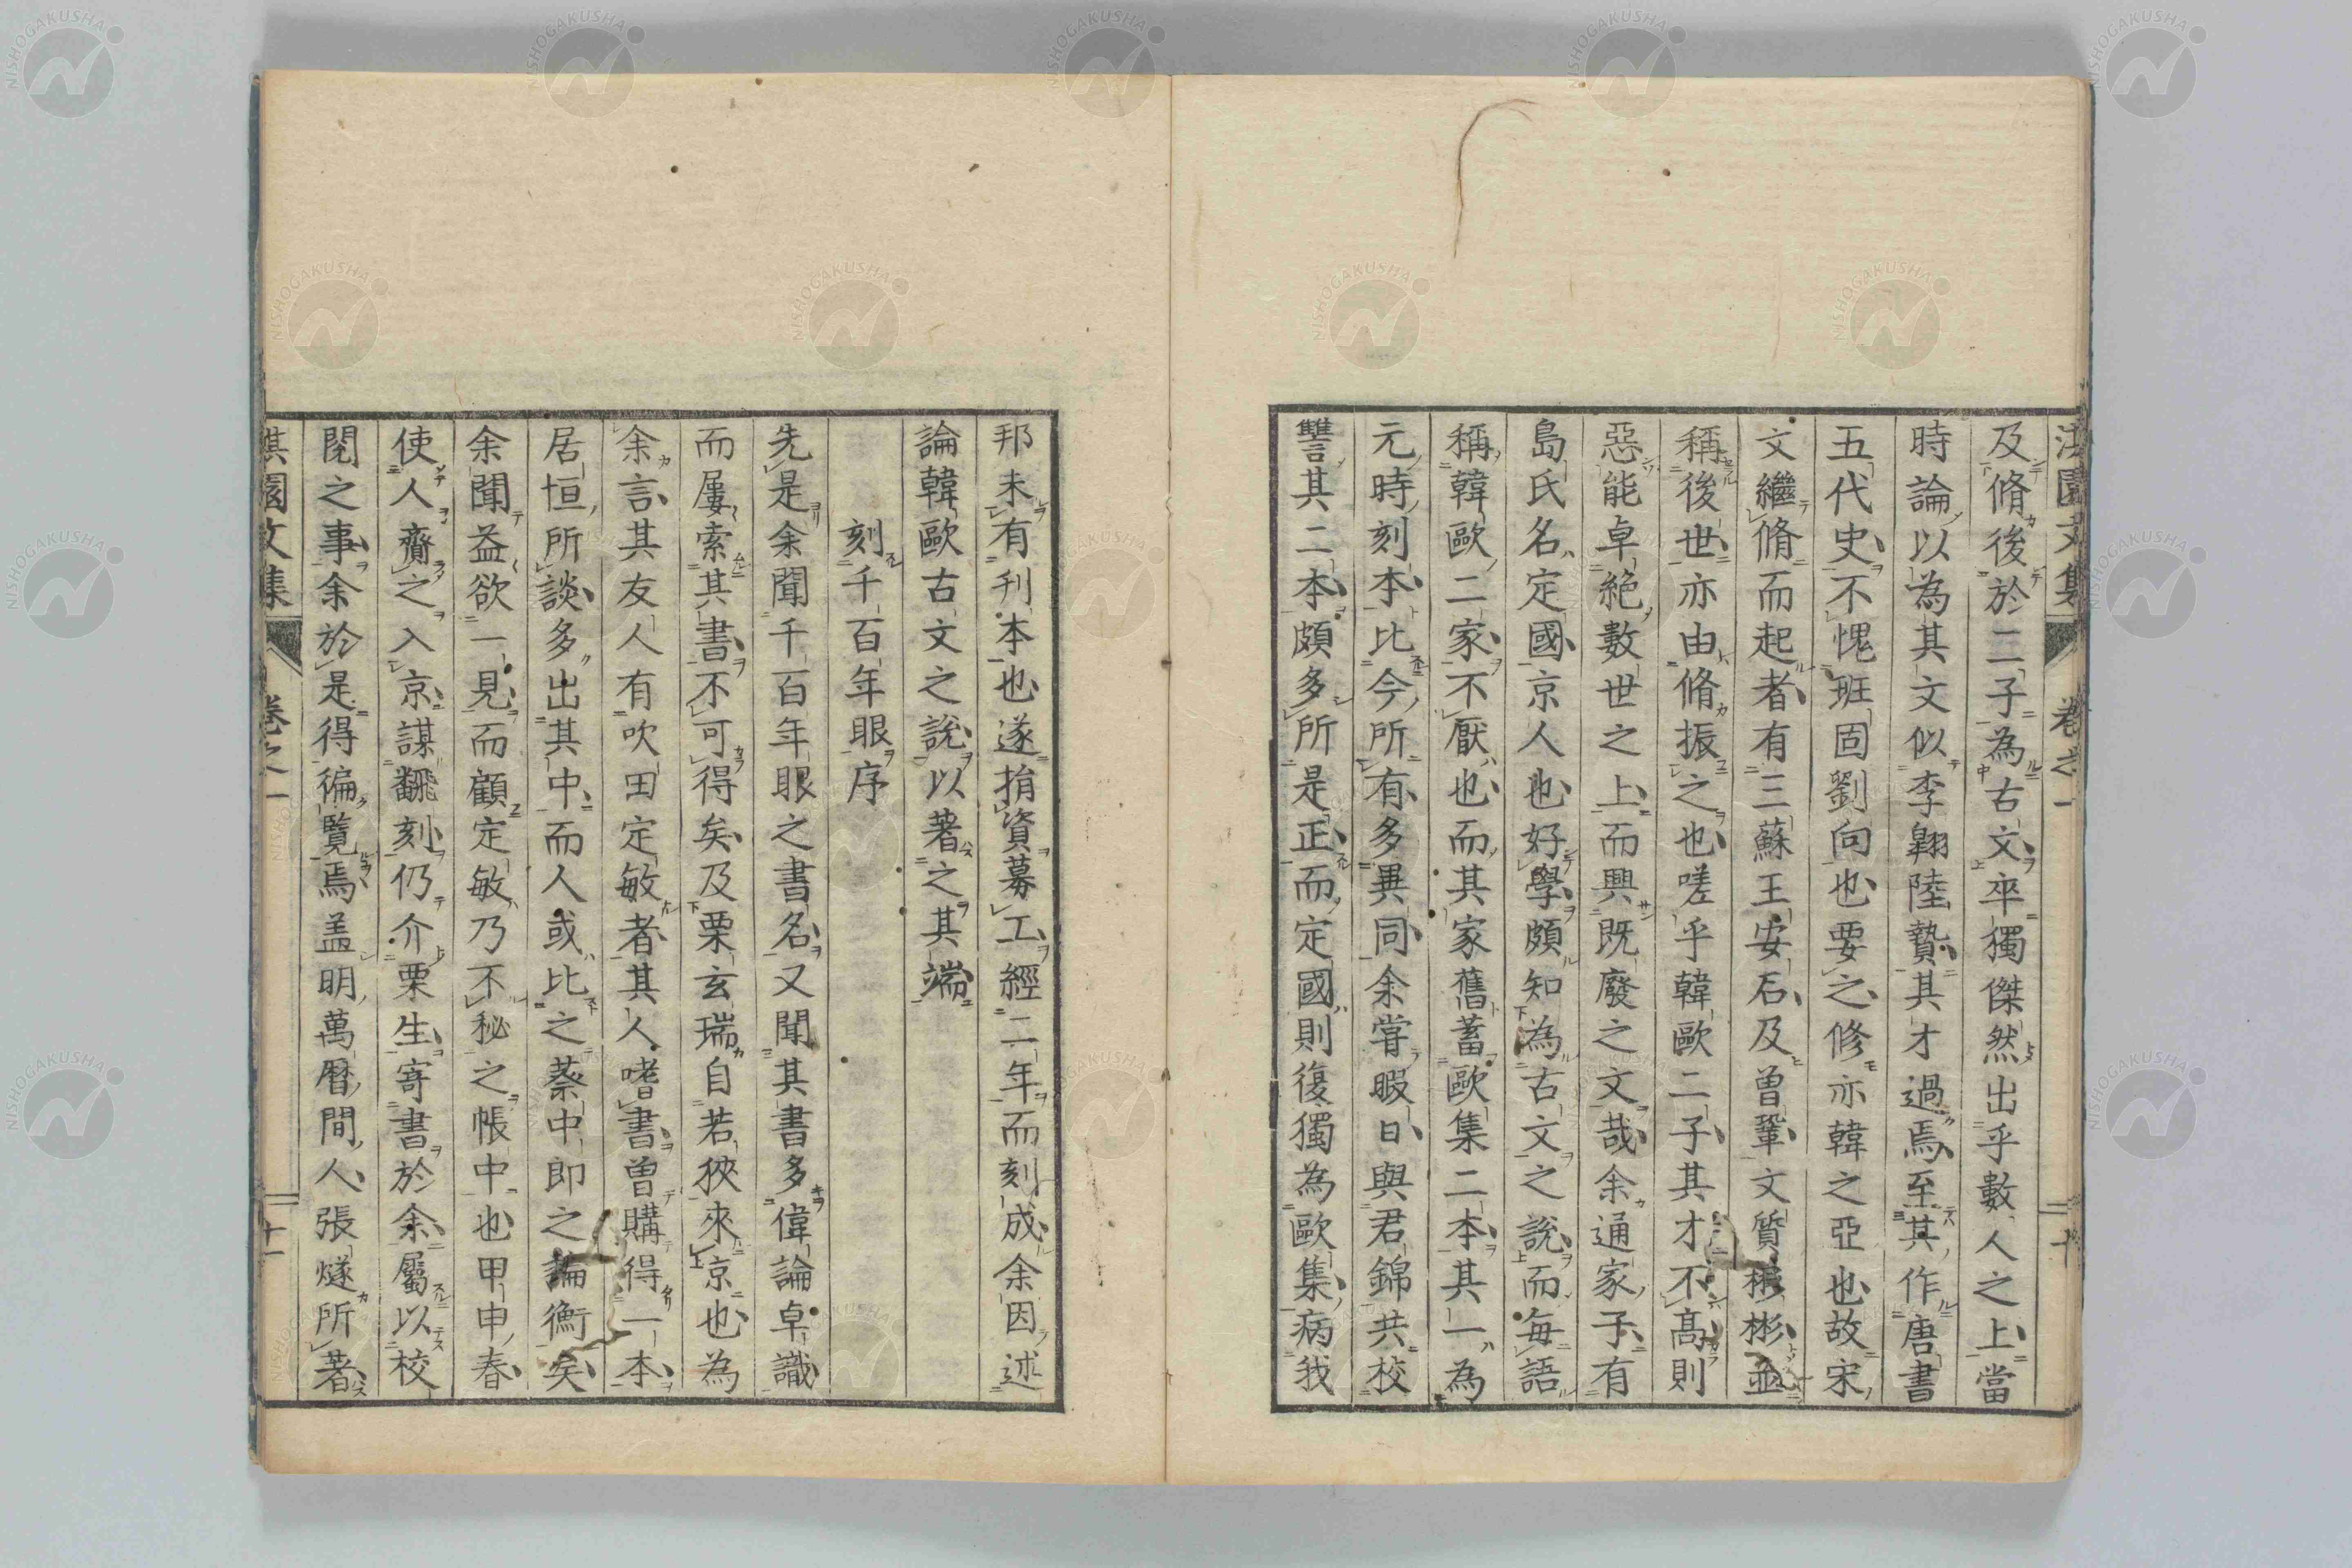 及脩後於二子為古文卒獨傑然出乎數人之上當
時論以為其文似李翱陸贄其才過焉至其作唐書
五代史不愧班固劉向也要之修亦韓之亞也故宋
文繼脩而起者有三蘇王安石及曾鞏文質彬彬並
稱後世亦由脩振之也嗟乎韓歐二子其才不高則
惡能卓絕數世之上而興既廢之文哉余通家子有
島氏名定國京人也好學頗知為古文之說而每語
稱韓歐二家不厭也而其家舊蓄歐集二本其一為
元時刻本比今所有多異同余嘗暇日與君錦共校
讐其二本頗多所是正而定國則復獨為歐集病我
邦未有刊本也遂捐資募工經二年而刻成余因述
論韓歐古文之說以著之其端
刻千百年眼序
先是余聞千百年眼之書名又聞其書多偉論卓識
而屢索其書不可得矣及栗玄瑞自若狹來京也為
余言其友人有吹田定敏者其人嗜書曾購得一本
居恒所談多出其中而人或比之蔡中郎之論衡矣
余聞益欲一見而顧定敏乃不秘之帳中也甲申春
使人齎之入京謀翻刻仍介栗生寄書於余屬以校
閱之事余於是得徧覽焉盖明萬曆間人張燧所著
淇園文集 卷之一 十
淇園文集 卷之一 十一
NISHOGAKUSHA